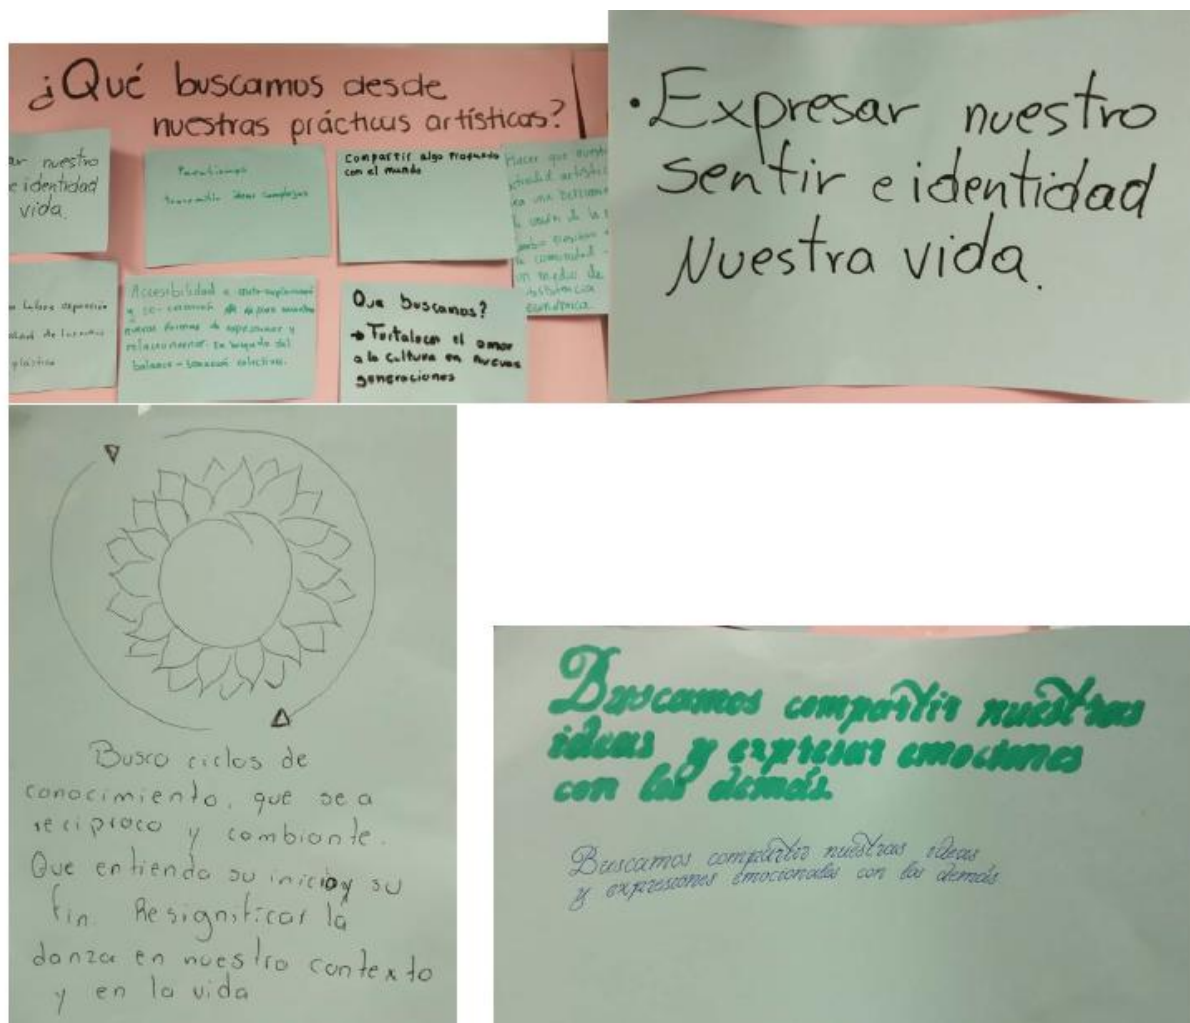 ¿Qué buscamos desde
nuestras prácticas artísticas?
nuestro
identidad
vida.
transmitir ideas complejas
Compartir algo
con el mundo
Hacer que
una
la
comunidad
un medio de
económica
plástica
Accesibilidad a
y
nuevas formas de expresarnos y
relacionarnos. En
balance - colectivo.
Que buscamos?
→ Fortalecer el amor
a la cultura en nuevas
generaciones
• Expresar nuestro
sentir e identidad
Nuestra vida.
Busco ciclos de
conocimiento, que sea
reciproco y cambiante.
Que entienda su inicio y su
fin. Resignificar la
danza en nuestro contexto
y en la vida
Buscamos compartir nuestras
ideas y expresar emociones
con los demás.
Buscamos compartir nuestras ideas
y expresiones emocionales con los demás